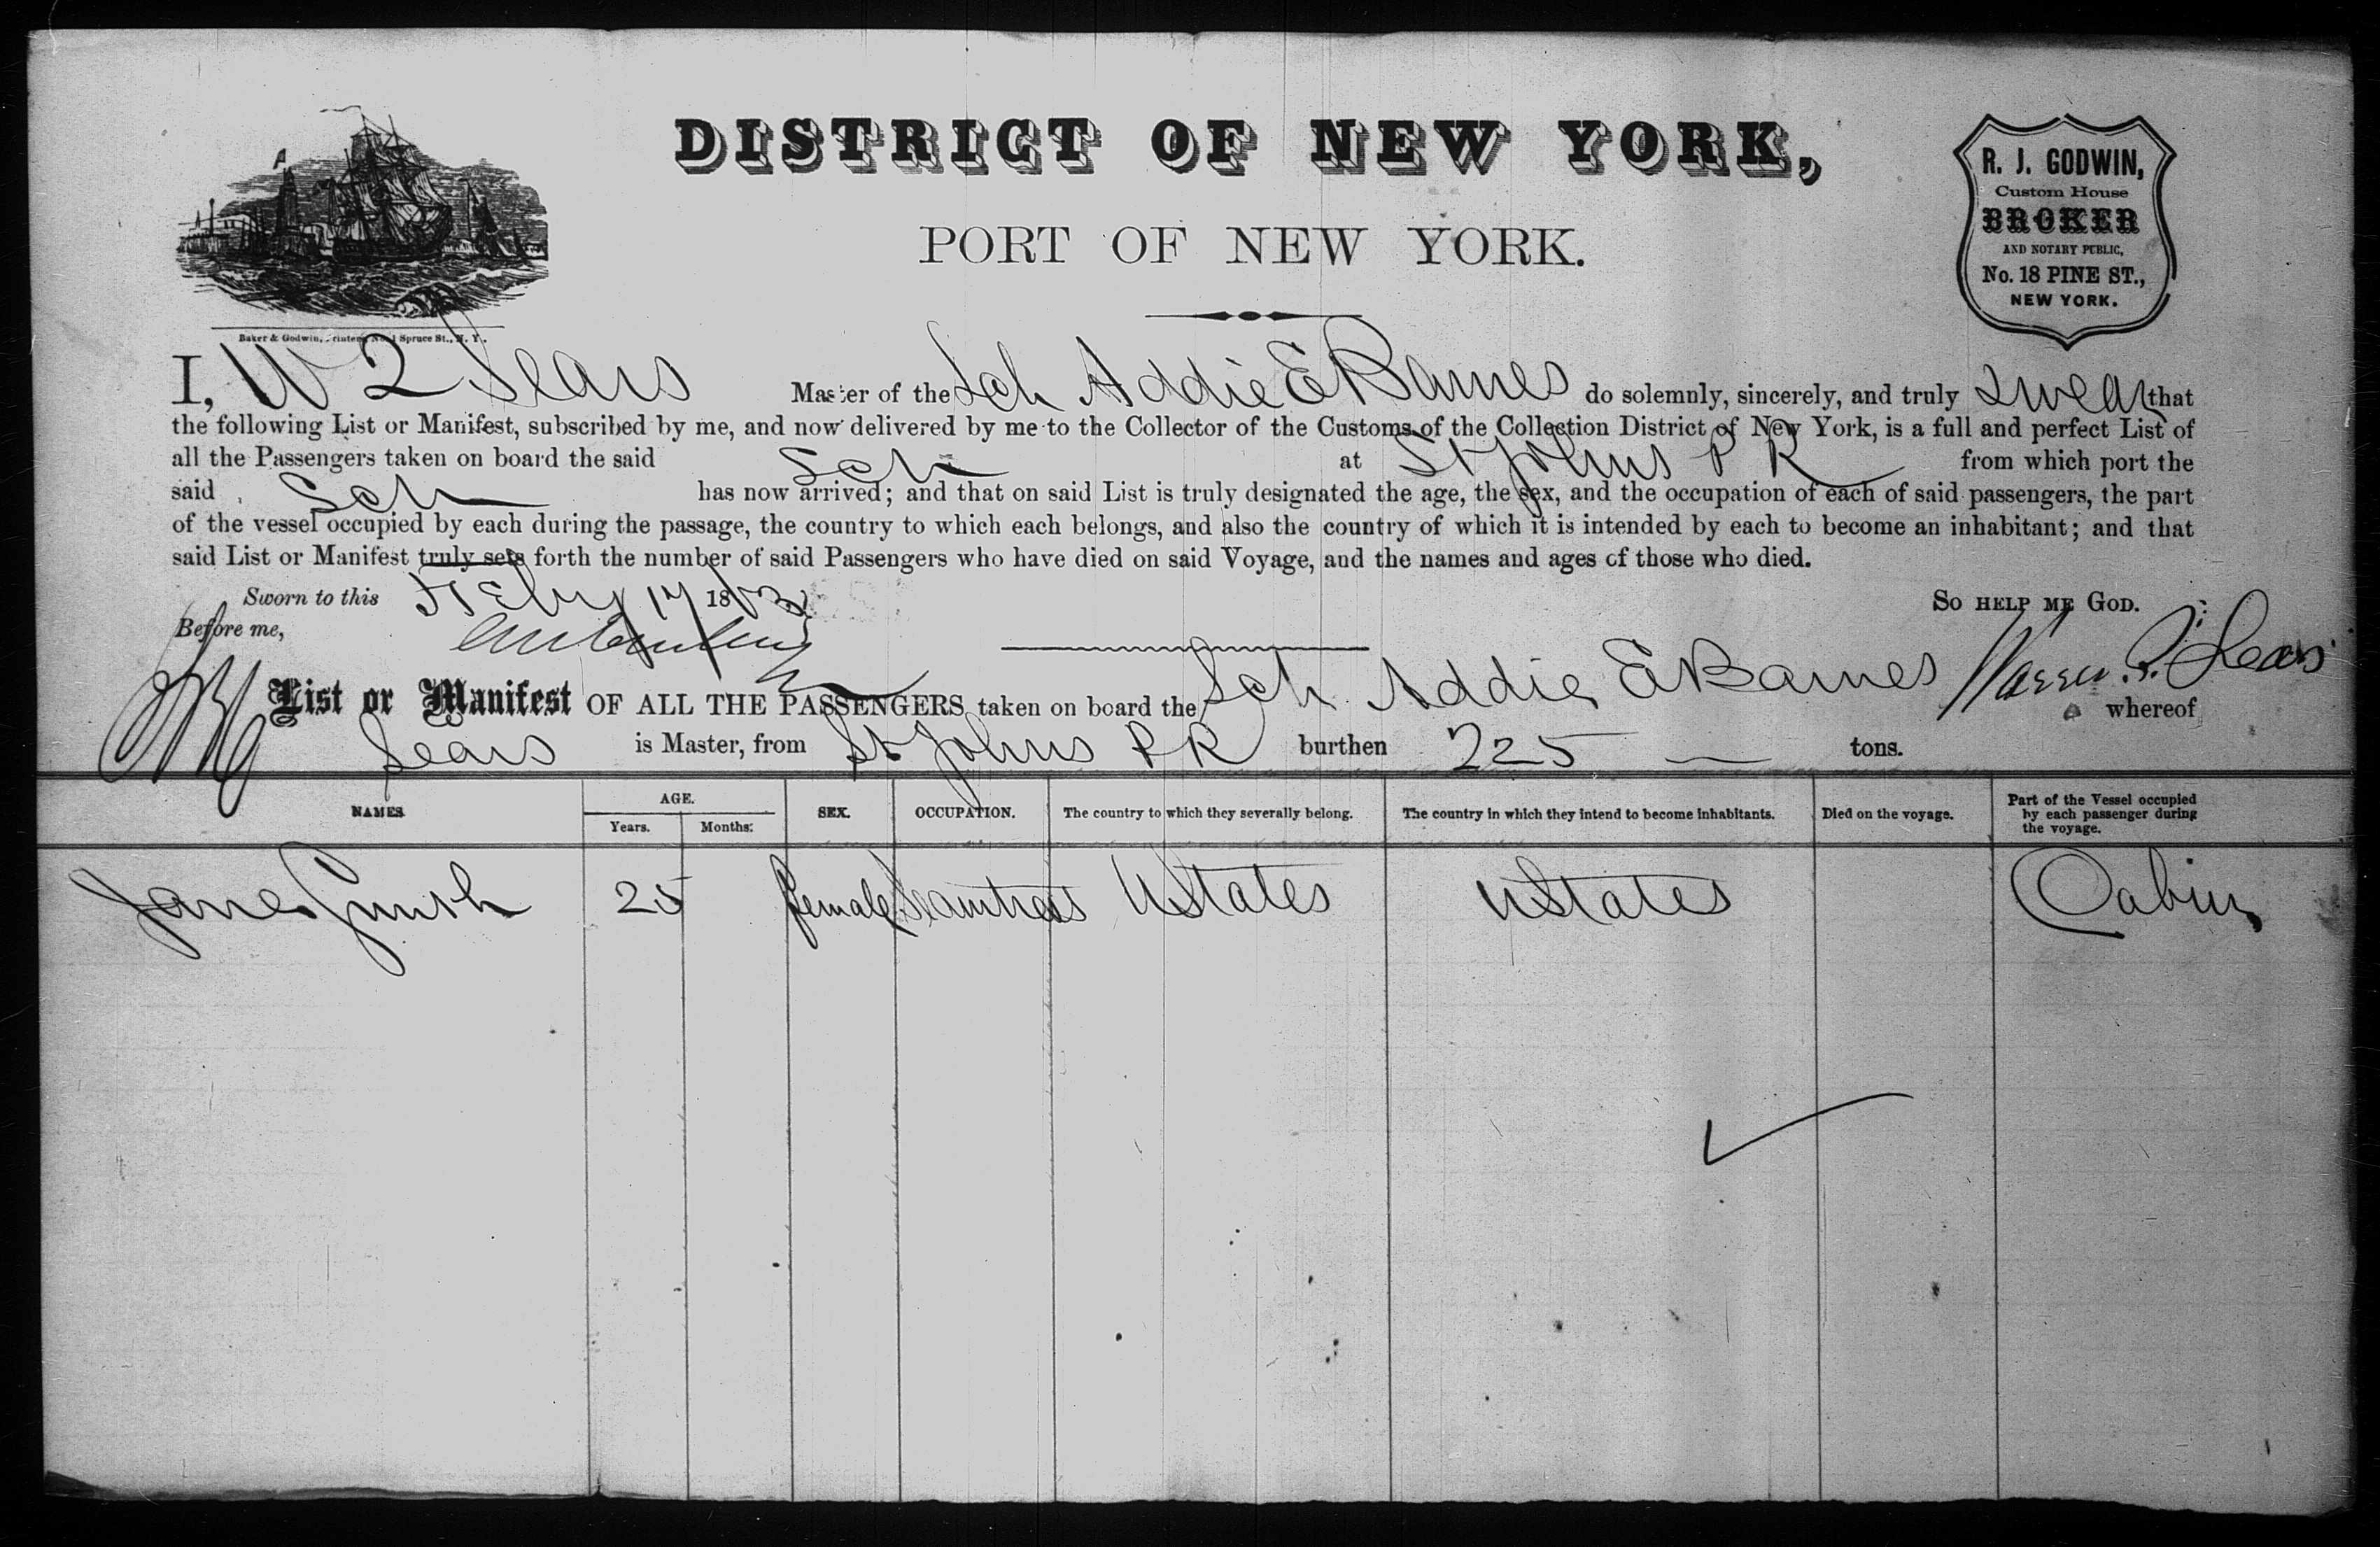 DISTRICT OF NEW YORK,
PORT OF NEW YORK.
R. J. GODWIN,
Custom House
BROKER
AND NOTARY PUBLIC,
No. 18 PINE ST.,
NEW YORK.
Baker & Godwin, Printers No. 1 Spruce St., N. Y.
I, W Sears Master of the Sch Addie E Barnes do solemnly, sincerely, and truly swear that
the following List or Manifest, subscribed by me, and now delivered by me to the Collector of the Customs of the Collection District of New York, is a full and perfect List of
all the Passengers taken on board the said Sch at St Johns P R from which port the
said Sch has now arrived; and that on said List is truly designated the age, the sex, and the occupation of each of said passengers, the part
of the vessel occupied by each during the passage, the country to which each belongs, and also the country of which it is intended by each to become an inhabitant; and that
said List or Manifest truly sets forth the number of said Passengers who have died on said Voyage, and the names and ages of those who died.
Sworn to this Feby 17 18 So HELP ME GOD.
Before me,
Sears
List or Manifest OF ALL THE PASSENGERS taken on board the Sch Addie E Barnes whereof
Sears is Master, from St Johns P R burthen 225 tons.
NAMES AGE. Years. Months. SEX. OCCUPATION. The country to which they severally belong. The country in which they intend to become inhabitants. Died on the voyage. Part of the Vessel occupied by each passenger during the voyage.
Jane Smith 25 female Seamtress UStates UStates Cabin